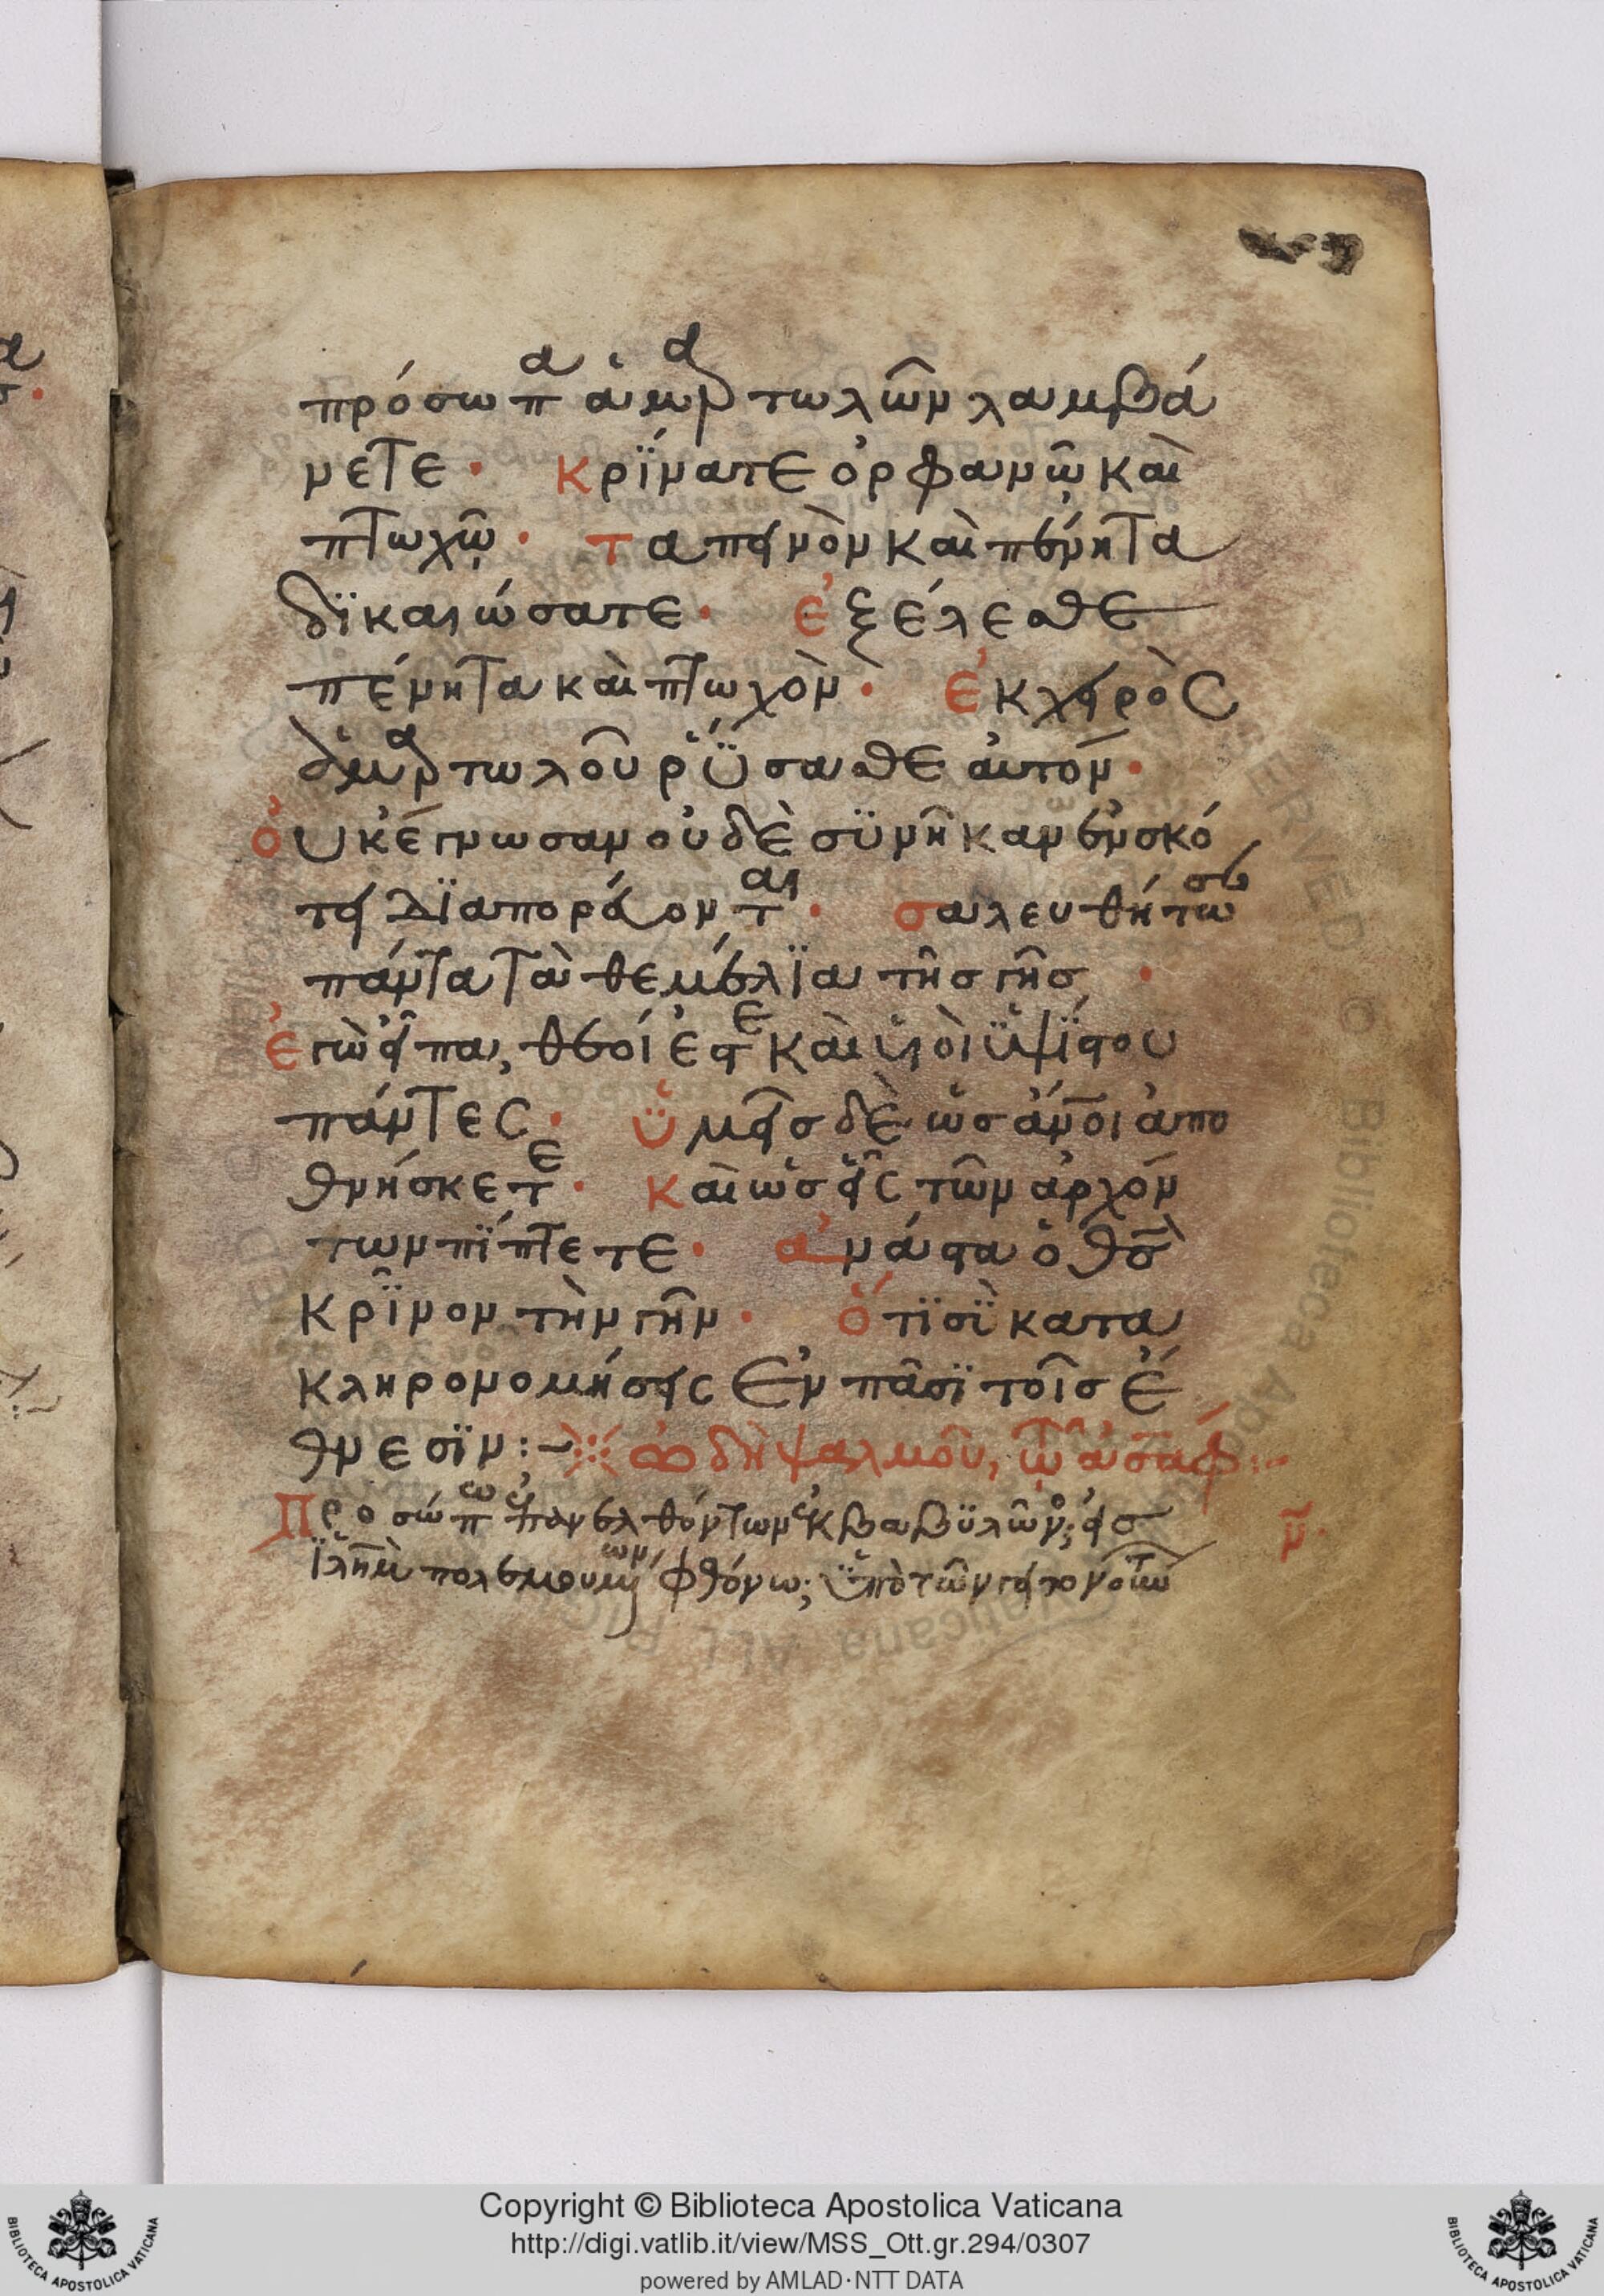 πρόσωπα ἁμαρτωλῶν λαμβά
νετε· κρΐνατε ὀρφανῷ καὶ
πτωχῷ· ταπεινὸν καὶ πένητα
δϊκαιώσατε· ἐξέλεσθε
πένητα καὶ πτωχὸν· ἐκ χειρὸς
ἁμαρτωλοῦ ῥΰσασθε αὐτόν·
ὀυκ ἔγνωσαν οὐδὲ συνῆκαν ἐν σκό
τει δϊαπορεύονται· σαλευθήτωσαν
πάντα τὰ θεμέλϊα τῆς γῆς·
ἐγὼ εἶπα, θεοί ἐστε καὶ υἱοὶ ὑψΐστου
πάντες· ὑμεῖς δὲ ὡς ἄνοι ἀπο
θνήσκετε· καὶ ὡς εἷς τῶν ἀρχόν
των πΐπτετε· ἀνάστα ὁ θς
κρῖνον τὴν γῆν· ὅτϊ σὺ κατα
κληρονομήσεις ἐν πᾶσϊ τοῖς ἔ
θνεσϊν:~ ὠδὴ ψαλμοῦ, τῷ ἀσάφ:~
Προσώπω ἐπανελθόντων ἐκ βαβυλῶνος; εἰς
ϊλημ πολεμουμένων φθόνω; ὑπὸ τῶν γειτονούντων